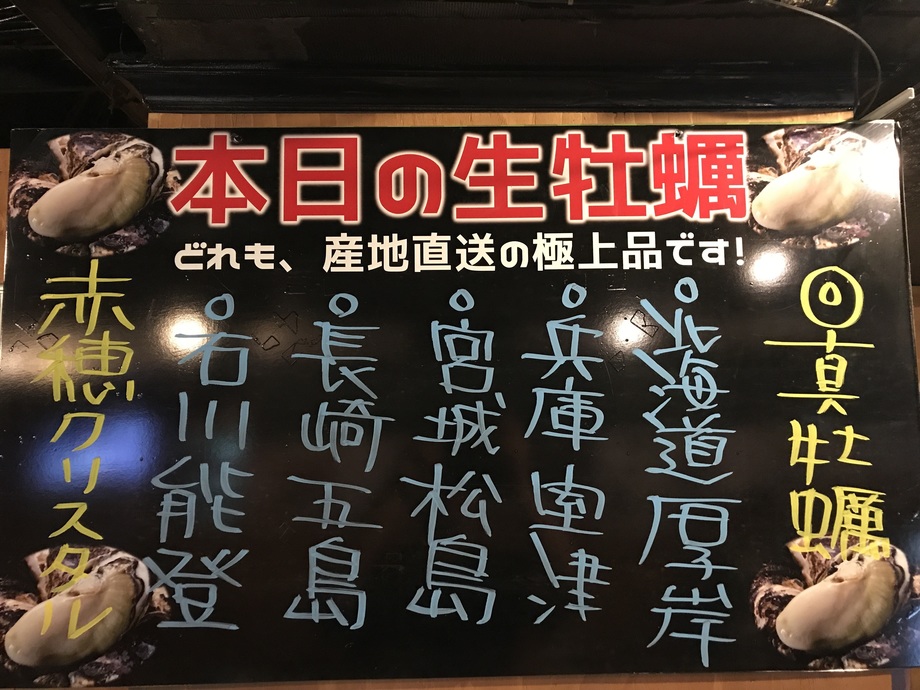 本日の生牡蠣
どれも、産地直送の極上品です!
◎真牡蠣
○北海道厚岸
○兵庫室津
○宮城松島
○長崎五島
○石川能登
赤穂クリスタル